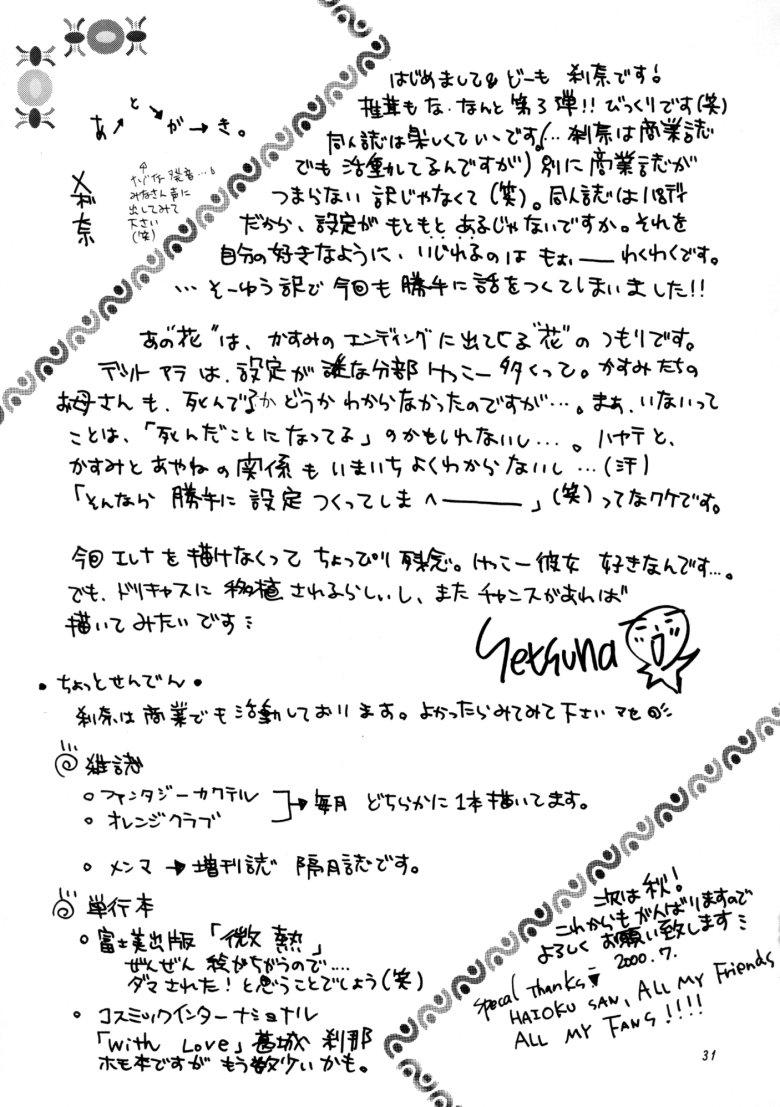 あとがき。
刹奈
みなさん声に
出してみて
下さい
(笑)
はじめまして&どーも 刹奈です!
なんと第3弾!! びっくりです(笑)
同人誌は楽しくていいです。(… 刹奈は商業誌
でも活動してるんですが) 別に商業誌が
つまらない訳じゃなくて(笑)。同人誌はパロディ
だから、設定がもともとあるじゃないですか。それを
自分の好きなように、いじれるのは もぉぃ── わくわくです。
…そーゆう訳で今回も勝手に話をつくてしまいました!!
あの"花"は、かすみのエンディングに出てくる"花"のつもりです。
デットアラは、設定が謎な分部けっこー多くって。かすみたちの
お母さんも、死んでるかどうかわからなかったのですが…。まぁ、いないって
ことは、「死んだことになってる」のかもしれないし…。ハヤテと、
かすみとあやねの関係もいまいちよくわからないし…(汗)
「そんなら勝手に設定つくってしまへ───」(笑)ってなワケです。
今回エレナを描けなくってちょっぴり残念。けっこー彼女好きなんです…。
でも、ドリキャスに移植されるらしいし、またチャンスがあれば
描いてみたいです
Setsuna
・ちょっとせんでん・
刹奈は商業でも活動しております。よかったらみてみて下さいませ
雑誌
○ファンタジーカクテル
○オレンジクラブ
→毎月 どちらかに1本描いてます。
○メンマ→増刊誌 隔月誌です。
単行本
○富士美出版「微熱」
ぜんぜん絵がちがうので….
ダマされた!と思うことでしょう(笑)
○コスミックインターナショナル
「with Love」葛城 刹那
ホモ本ですがもう数少いかも。
次は秋!
これからもがんばりますので
よろしくお願い致します
2000.7.
Specal thanks
HAIOKU SAN, ALL MY Friends
ALL MY FANS!!!!
31